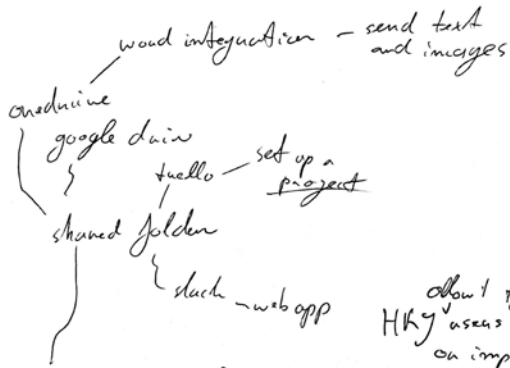 word integration – send text
and images
onedrive
google drive
trello – set up a
project
shared folder
slack – web app
allow
HKY users
on imp